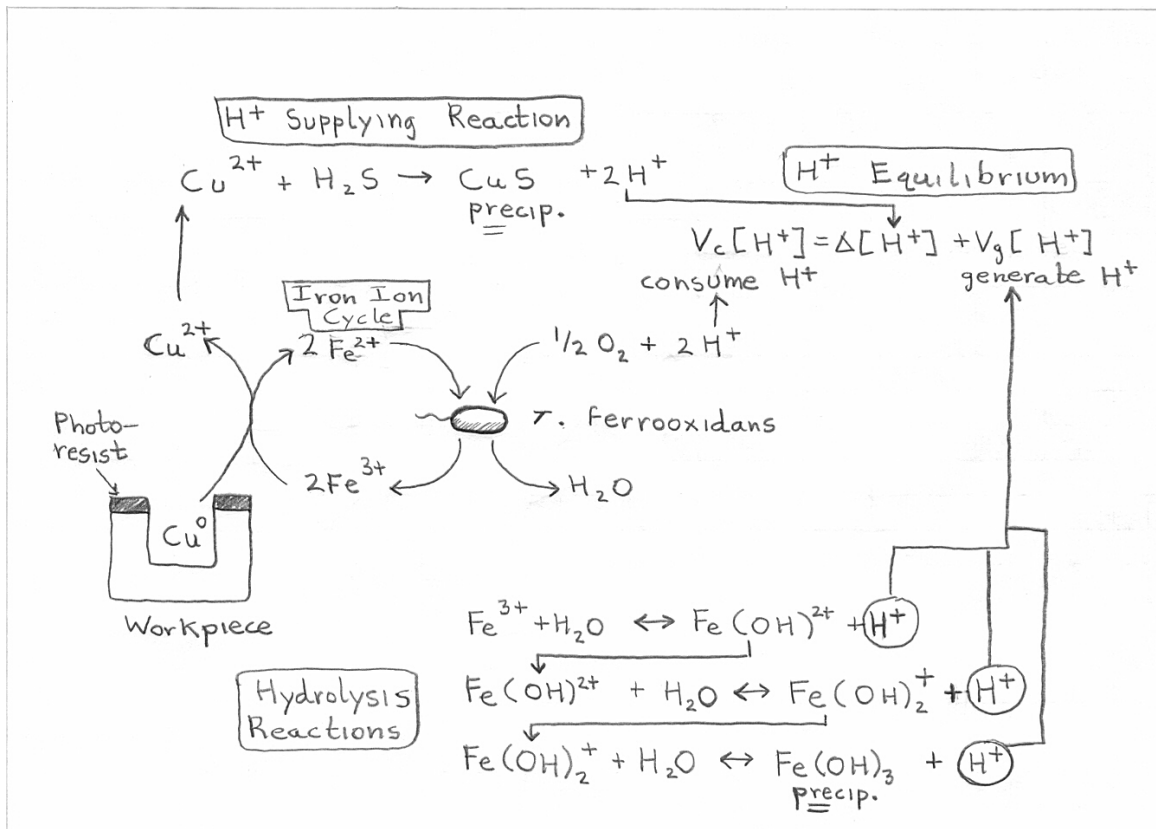 H⁺ Supplying Reaction
Cu²⁺ + H₂S → CuS + 2H⁺
precip.
H⁺ Equilibrium
Vc[H⁺] = Δ[H⁺] + Vg[H⁺]
consume H⁺
generate H⁺
Iron Ion
Cycle
Cu²⁺
2 Fe²⁺
1/2 O₂ + 2 H⁺
T. ferrooxidans
Photo-
resist
2Fe³⁺
H₂O
Cu⁰
Workpiece
Fe³⁺ + H₂O ↔ Fe(OH)²⁺ + H⁺
Hydrolysis
Reactions
Fe(OH)²⁺ + H₂O ↔ Fe(OH)₂⁺ + H⁺
Fe(OH)₂⁺ + H₂O ↔ Fe(OH)₃ + H⁺
precip.